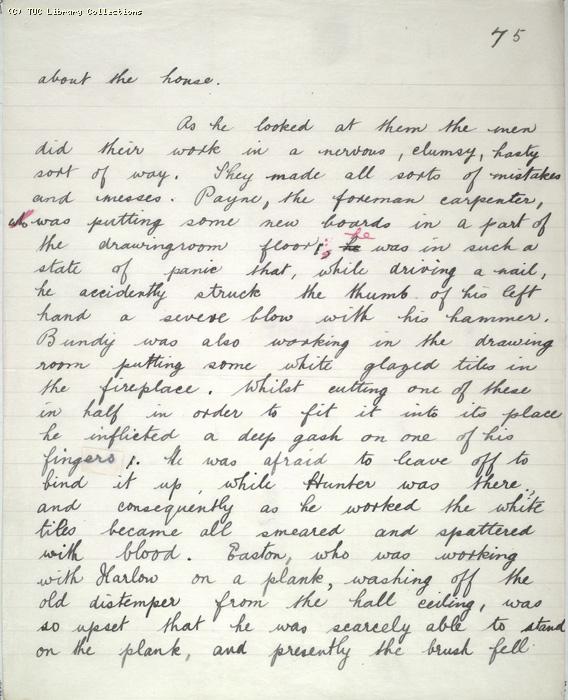 (C) TUC Library Collections
75
about the house.
As he looked at them the men
did their work in a nervous, clumsy, hasty
sort of way. They made all sorts of mistakes
and messes. Payne, the foreman carpenter,
was putting some new boards in a part of
the drawingroom floor; he was in such a
state of panic that, while driving a nail,
he accidently struck the thumb of his left
hand a severe blow with his hammer.
Bundy was also working in the drawing
room putting some white glazed tiles in
the fireplace. Whilst cutting one of these
in half in order to fit it into its place
he inflicted a deep gash on one of his
fingers. He was afraid to leave off to
bind it up, while Hunter was there,
and consequently as he worked the white
tiles became all smeared and spattered
with blood. Easton, who was working
with Harlow on a plank, washing off the
old distemper from the hall ceiling, was
so upset that he was scarcely able to stand
on the plank, and presently the brush fell